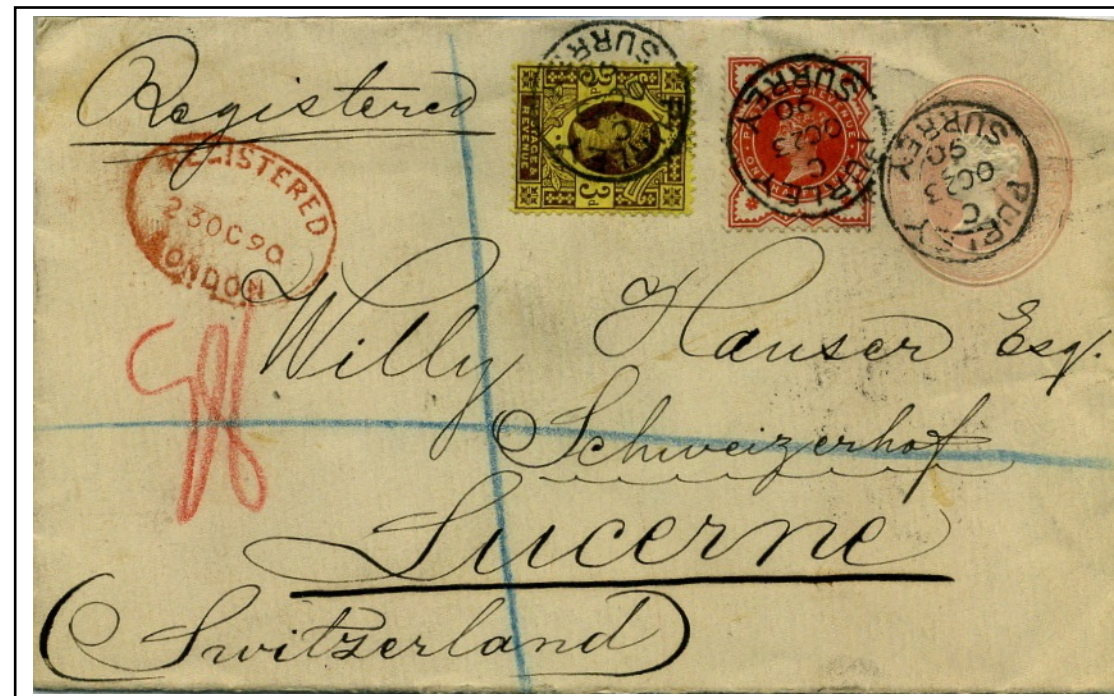 Registered
REGISTERED
23 OC 90
LONDON
POSTAGE
REVENUE
3D
SURREY
PURLEY
C
OC 23
90
SURREY
PURLEY
C
OC 23
90
SURREY
Willy Hauser Esq.
Schweizerhof
Lucerne
(Switzerland)